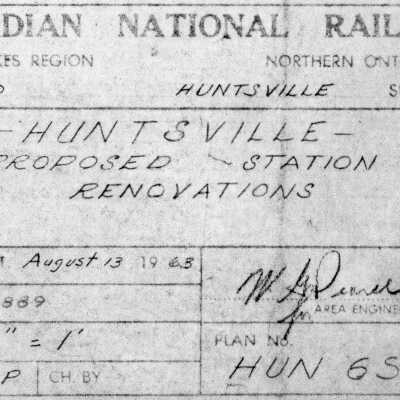 DIAN NATIONAL RAIL
ES REGION NORTHERN ONT
HUNTSVILLE S
-HUNTSVILLE-
PROPOSED STATION
RENOVATIONS
August 13 1963
889
" = 1'
AREA ENGINE
PLAN No.
P CH. BY HUN 6S